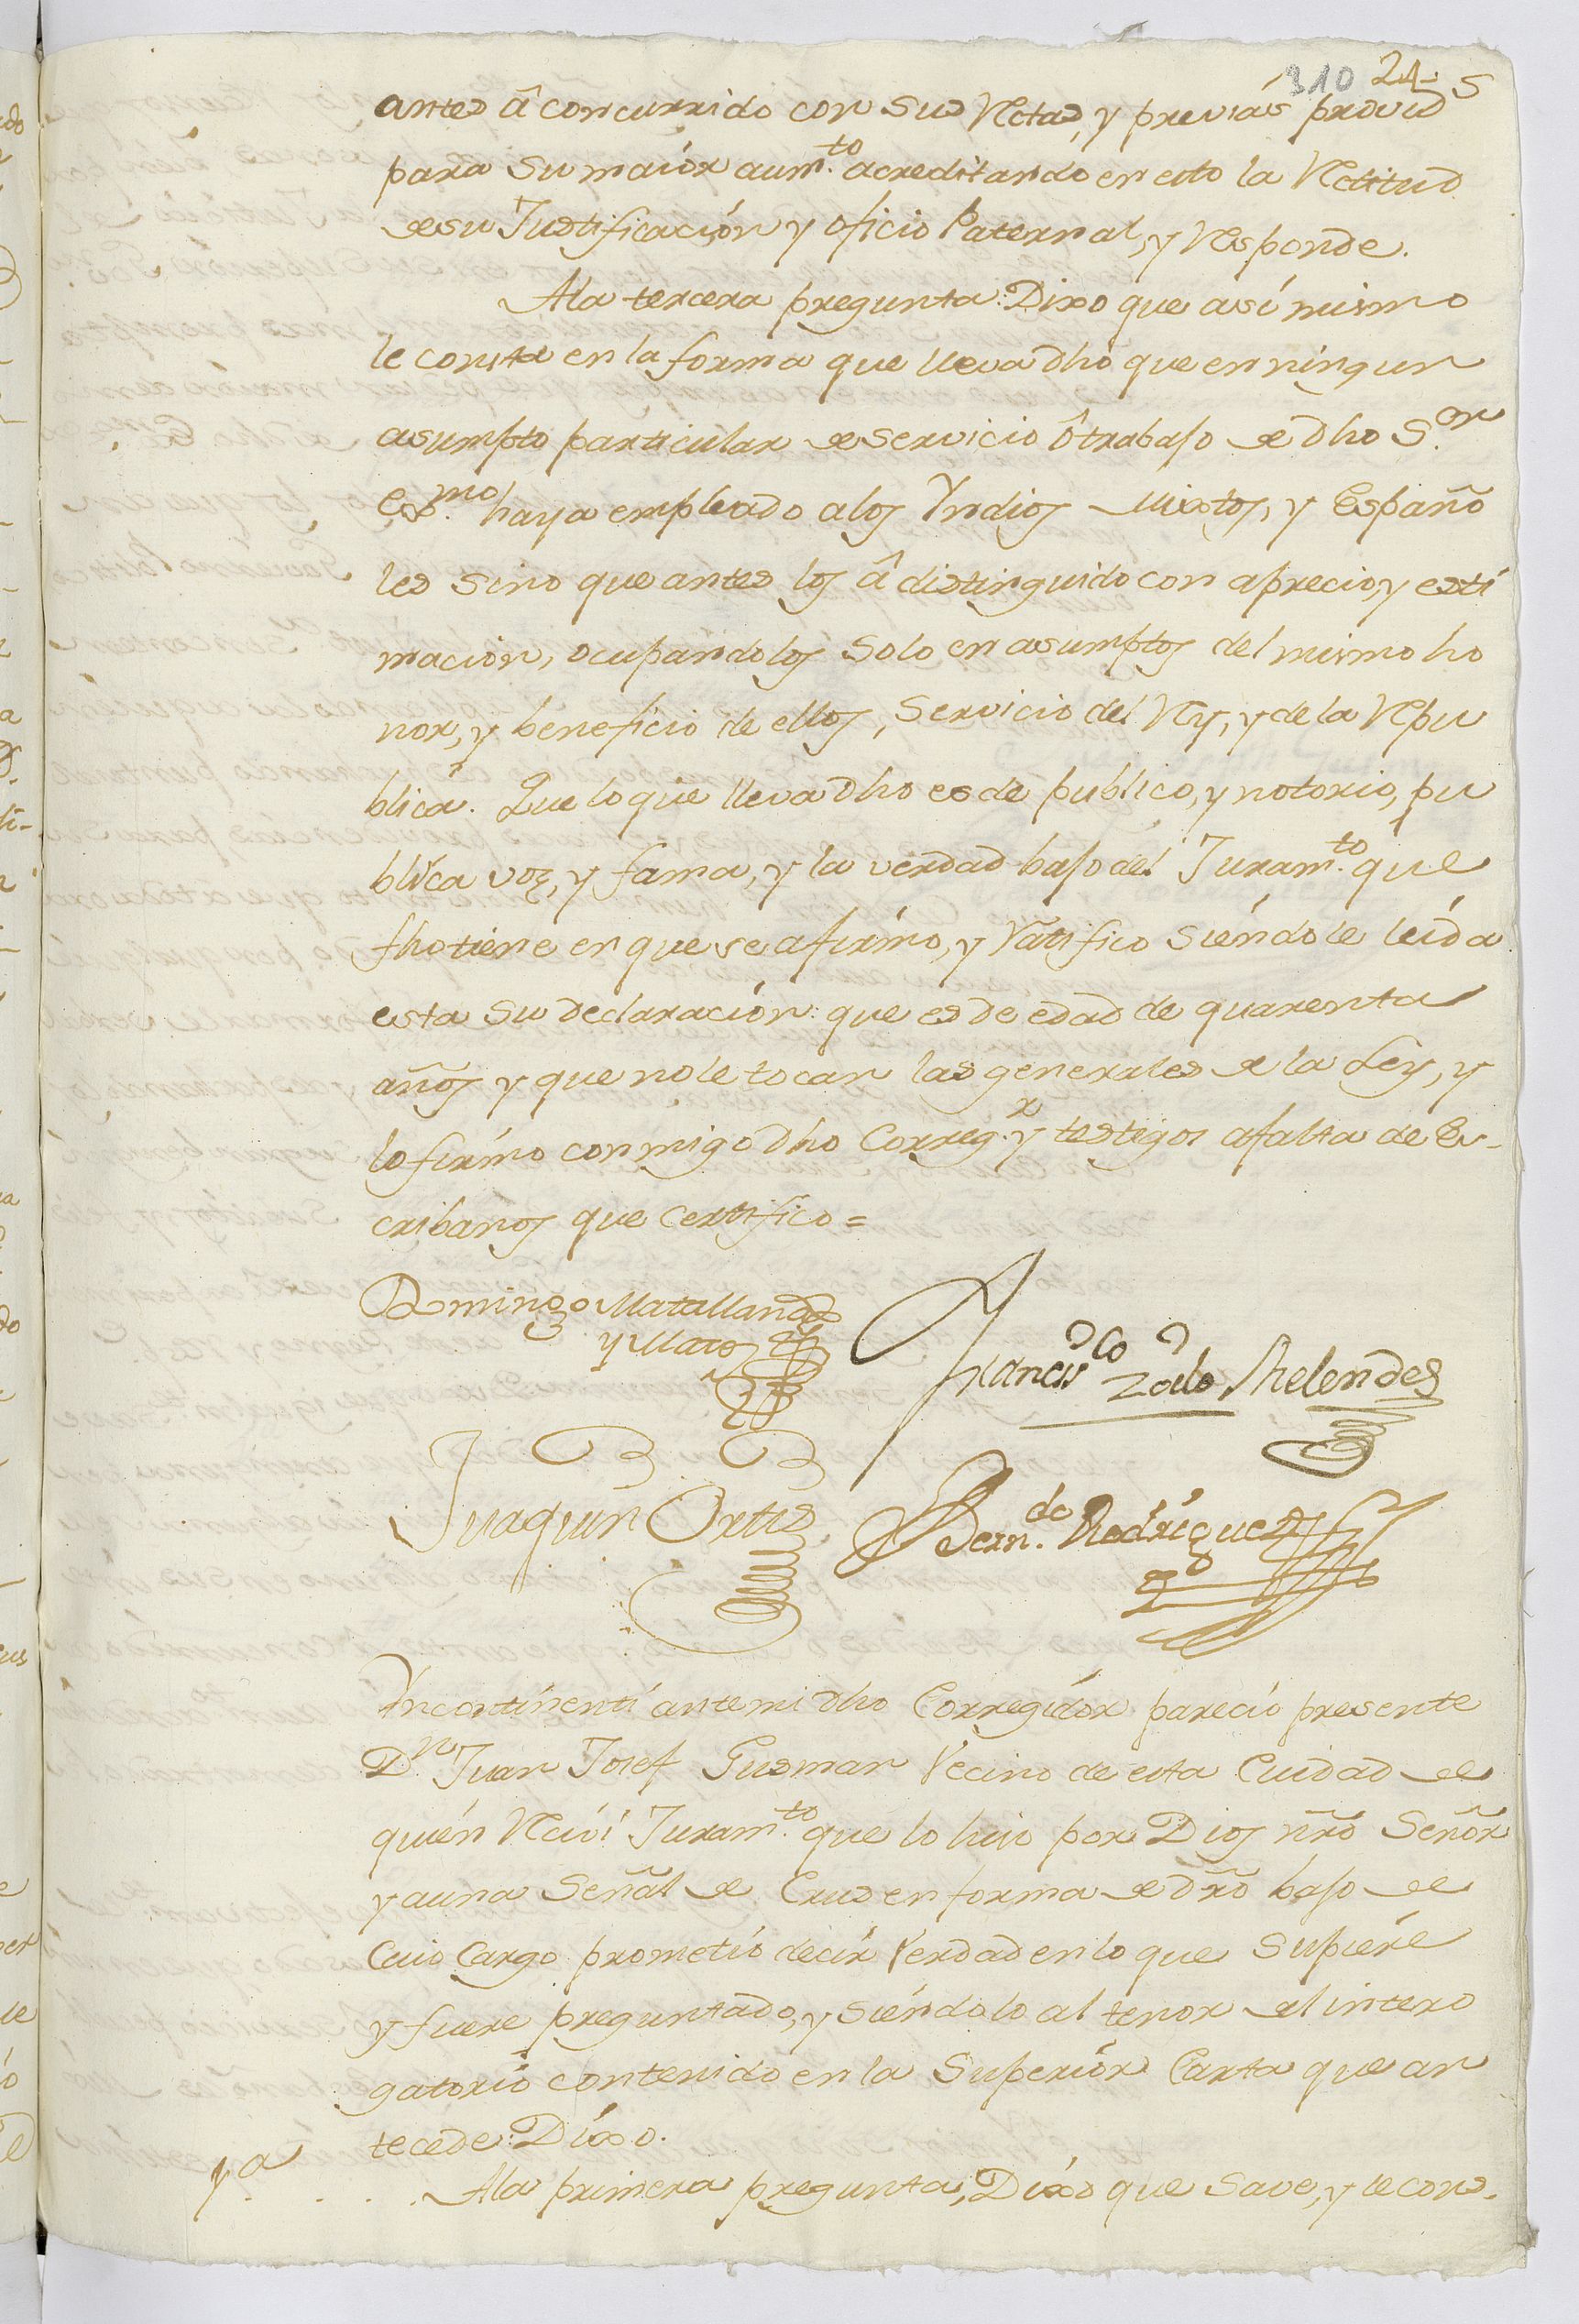 310 24 S
antes â concurrido con sus Rectas, y previas provid
para su maior aum.to acreditando en esto la Rectitud
de su Justificación y oficio Paternal, y Responde.
A la tercera pregunta: Dixo que así mismo
le consta en la forma que lleva dho que en ningun
asumpto particular de servicio ô trabajo de dho S.or
Ex.mo haya empleado a los Yndios Mixtos, y Españo
les sino que antes los â distinguido con aprecio, y esti
macion, ocupandolos solo en asumptos del mismo ho
nor, y beneficio de ellos, servicio del Rey, y de la Repu
blica. Que lo que lleva dho es de publico, y notorio, pu
blica voz, y fama, y la verdad bajo del Juram.to que
fho tiene en que se afirmo, y Ratifico siendole leida
esta su declaración: que es de edad de quarenta
años y que no le tocan las generales de la Ley, y
lo firmo conmigo dho Correg.r y testigos a falta de Es-
cribanos que Certifico =
Domingo Matallana
y Matos
Francis.co Melendes
Juaquin Ortis
Bern.do Rodriguez
Yncontinenti ante mi dho Corregidor parecio presente
D.n Juan Josef Gusman Vecino de esta Cuidad de
quién Reciví Juram.to que lo hiso por Dios nro Señor
y a una Señal de Crus en forma de dro bajo de
Cuio Cargo prometió decir Verdad en lo que Supiere
y fuere preguntado, y siéndolo al tenor del intero
gatorio contenido en la Superior Carta que an
tecede: Dixo.
1.a A la primera pregunta, Dixo que Save, y le cons-